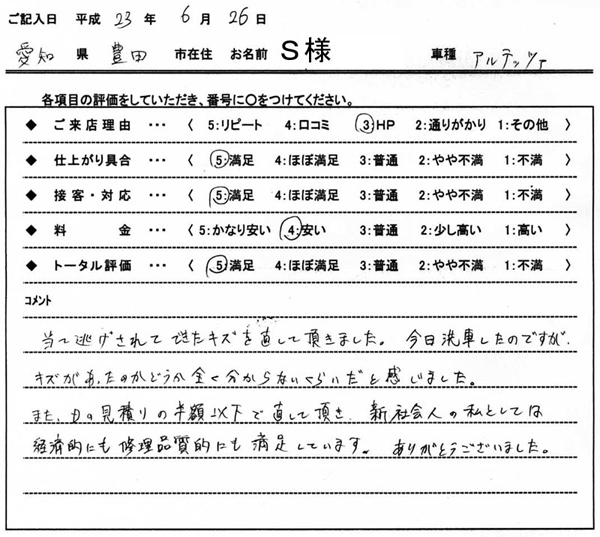 ご記入日 平成 23 年 6 月 26 日
愛知 県 豊田 市在住 お名前 S様 車種 アルテッツァ
各項目の評価をしていただき、番号に○をつけてください。
◆ ご来店理由 ・・・ 〈 5:リピート 4:口コミ 3:HP 2:通りがかり 1:その他 〉
◆ 仕上がり具合 ・・・ 〈 5:満足 4:ほぼ満足 3:普通 2:やや不満 1:不満 〉
◆ 接客・対応 ・・・ 〈 5:満足 4:ほぼ満足 3:普通 2:やや不満 1:不満 〉
◆ 料金 ・・・ 〈 5:かなり安い 4:安い 3:普通 2:少し高い 1:高い 〉
◆ トータル評価 ・・・ 〈 5:満足 4:ほぼ満足 3:普通 2:やや不満 1:不満 〉
コメント
当て逃げされてできたキズを直して頂きました。 今日洗車したのですが、
キズがあったのかどうか全く分からないくらいだと感じました。
また、の見積りの半額以下で直して頂き、新社会人の私としては
経済的にも修理品質的にも満足しています。 ありがとうございました。